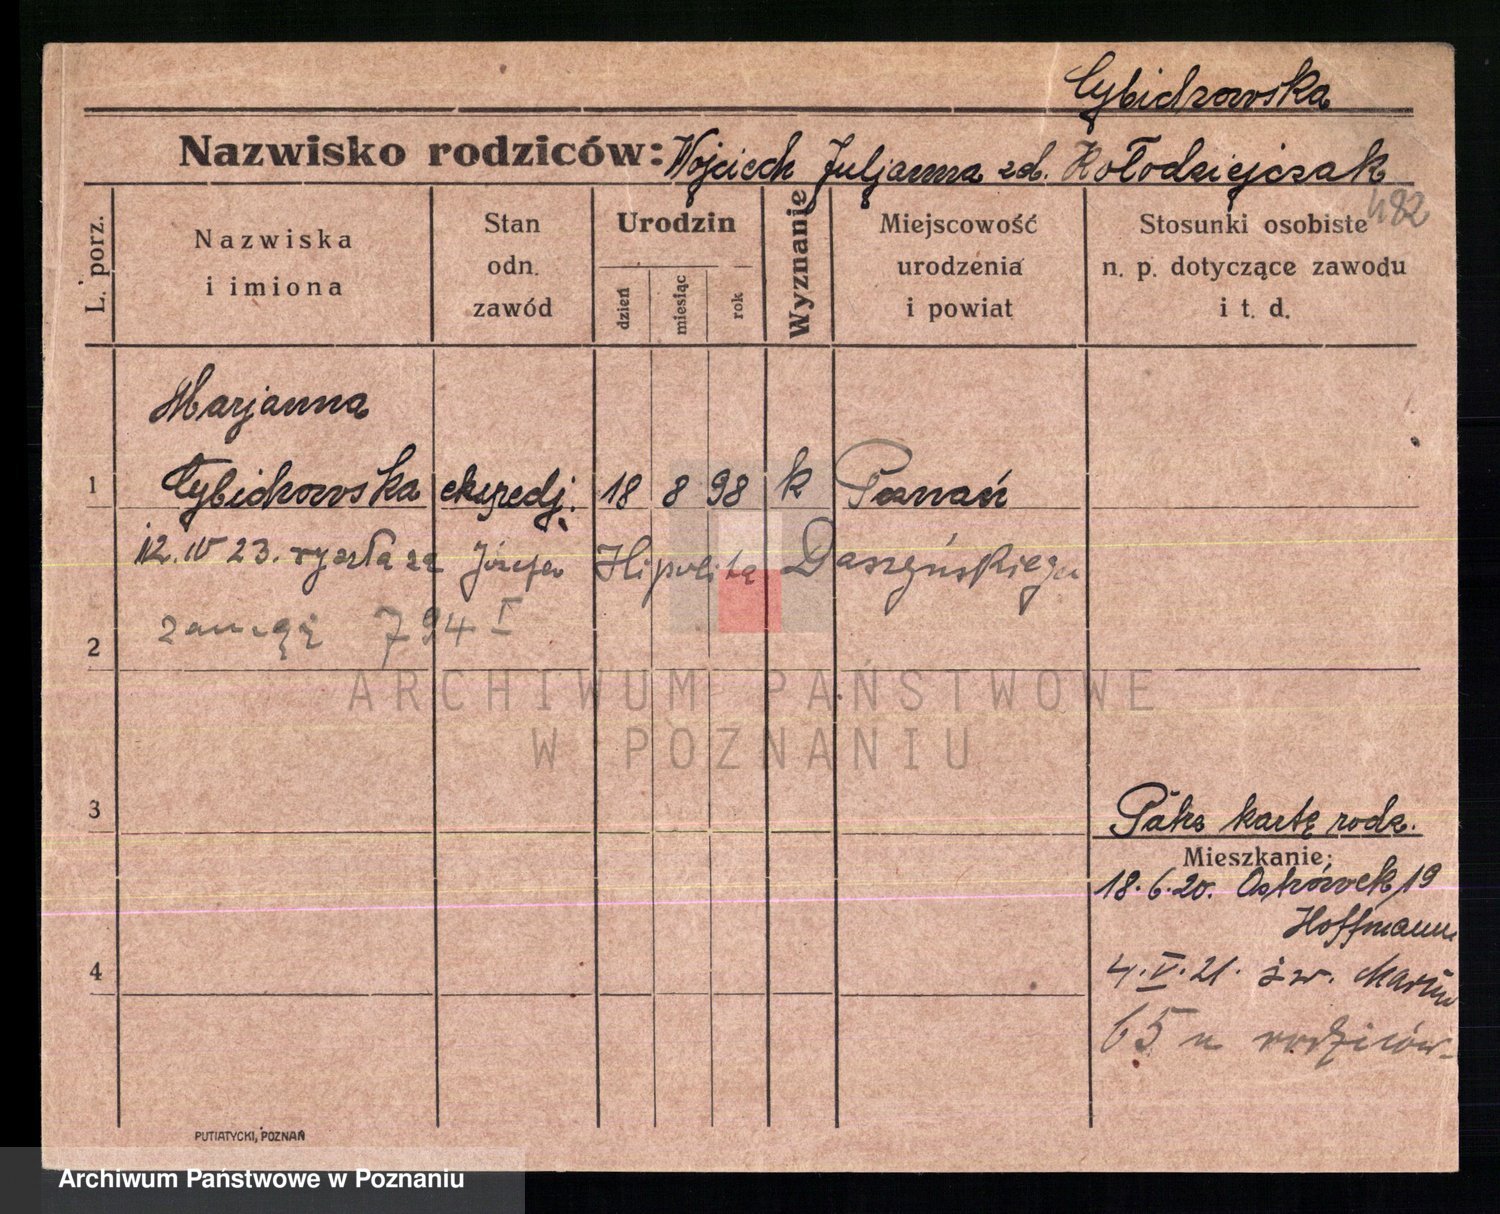 Cybichowska
Nazwisko rodziców: Wojciech Juljanna zd. Kołodziejczak
482
L. porz.
Nazwiska
i imiona
Stan
odn.
zawód
Urodzin
dzień
miesiąc
rok
Wyznanie
Miejscowość
urodzenia
i powiat
Stosunki osobiste
n. p. dotyczące zawodu
i t. d.
Marjanna
1 Cybichowska ekspedj. 18 8 98 k Poznań
12. IV 23. wyszła za Józefa Hipolita Daszyńskiego
zamęż 794 I
2
ARCHIWUM PAŃSTWOWE
W POZNANIU
3
Patrz kartę rodz.
Mieszkanie:
18.6.20. Ostrówek 19
Hoffmann
4
4.V.21. św. Marcin
65 u rodziców
PUTIATYCKI, POZNAŃ
Archiwum Państwowe w Poznaniu